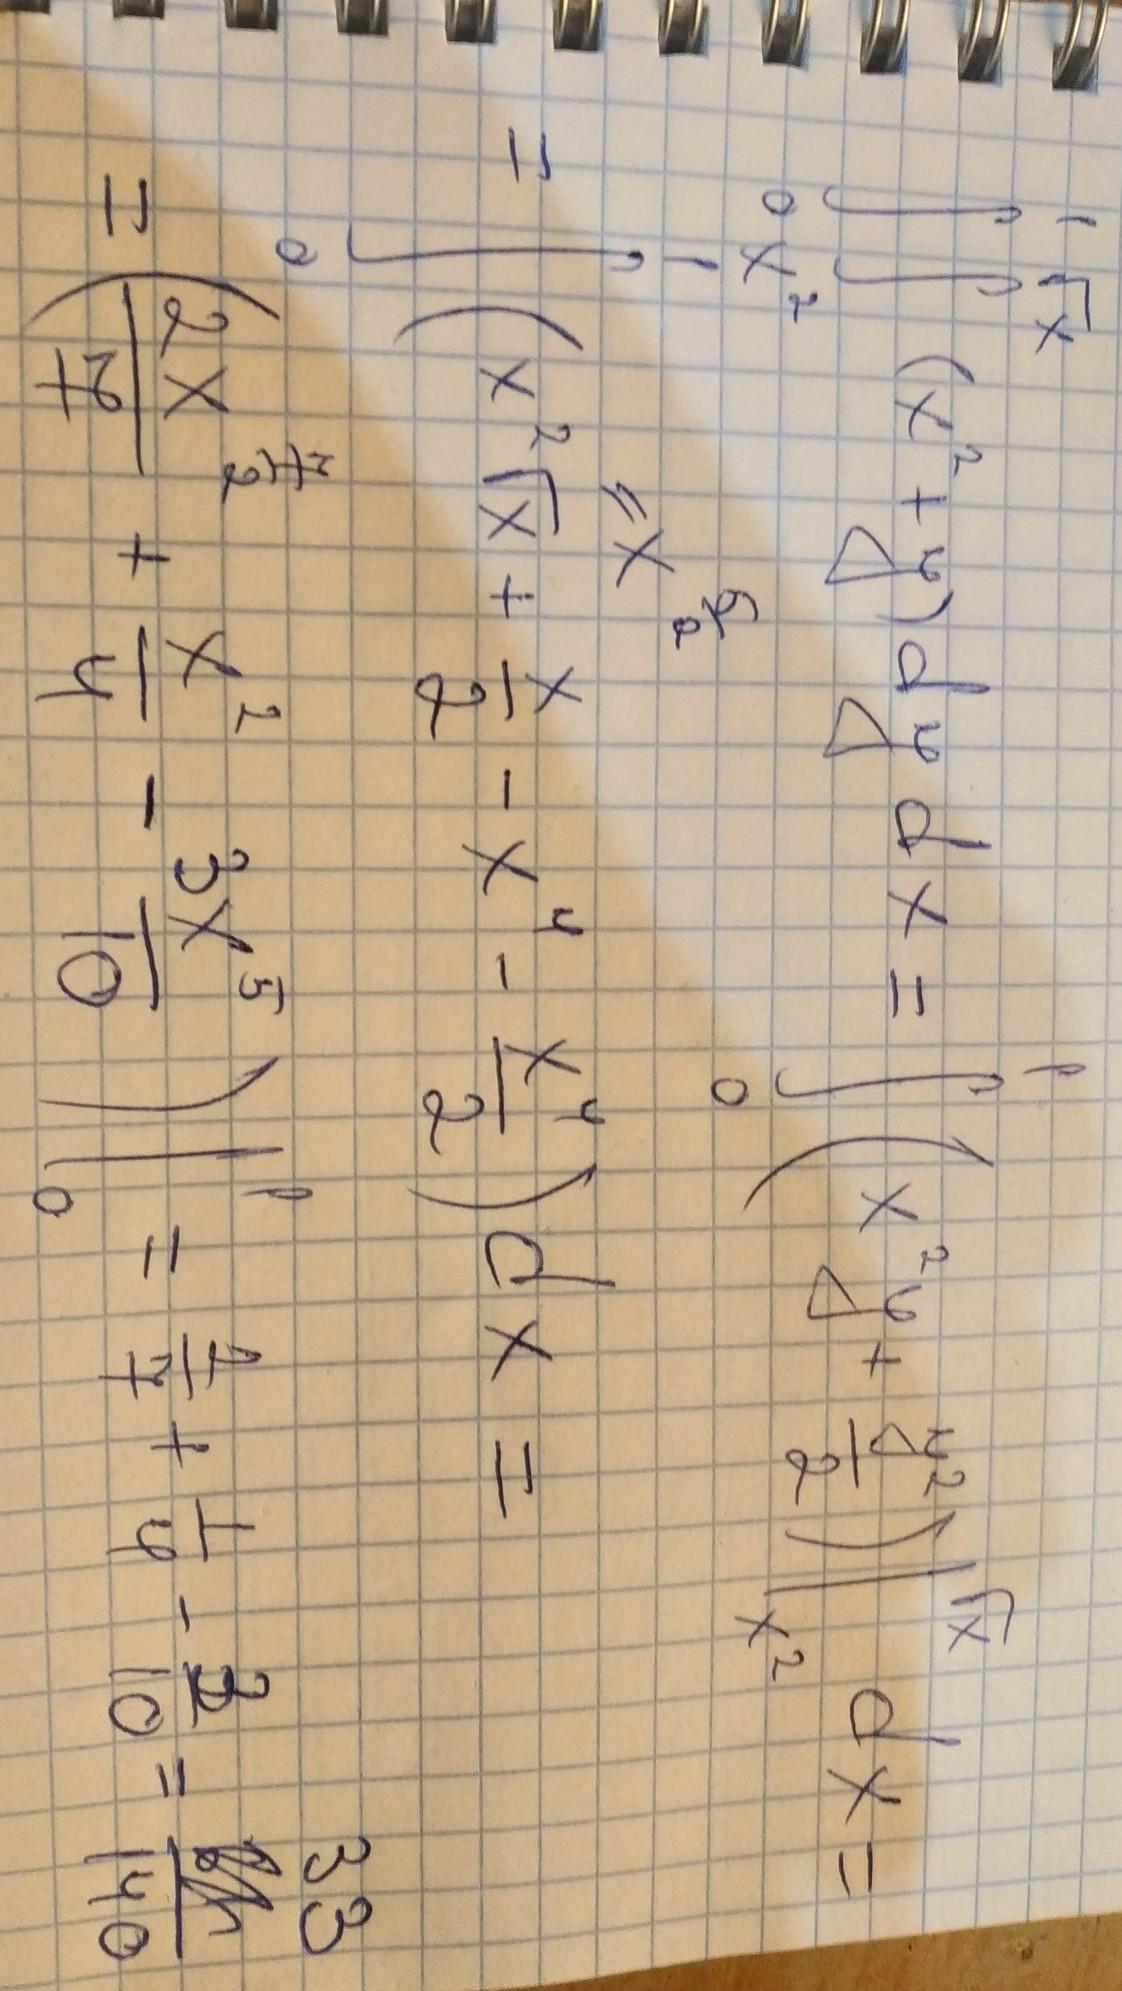 ∫₀¹ ∫_{x²}^{√x} (x² + y) dy dx = ∫₀¹ (x²y + y²/2)|_{x²}^{√x} dx =
= x^{5/2}
= ∫₀¹ (x²√x + x/2 - x⁴ - x⁴/2) dx =
= (2x^{7/2}/7 + x²/4 - 3x⁵/10)|₀¹ = 2/7 + 1/4 - 3/10 = 33/140